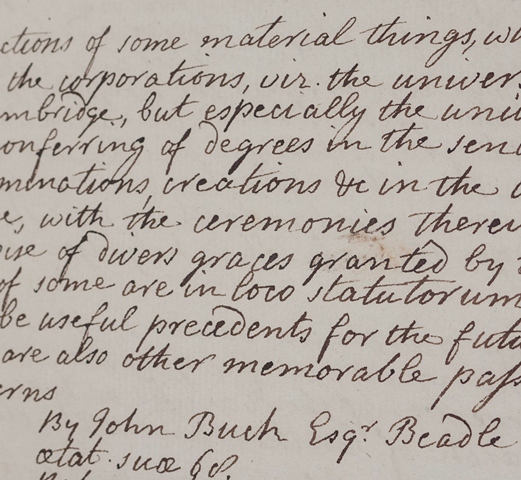 ctions of some material things, wh
the corporations, viz. the univers
mbridge, but especially the univ
onferring of degrees in the sena
minations, creations &c in the
e, with the ceremonies thereu
ise of divers graces granted by
of some are in loco statutorum
be useful precedents for the futu
are also other memorable pass
erns
By John Buck Esqr. Beadle
ætat. suæ 68.